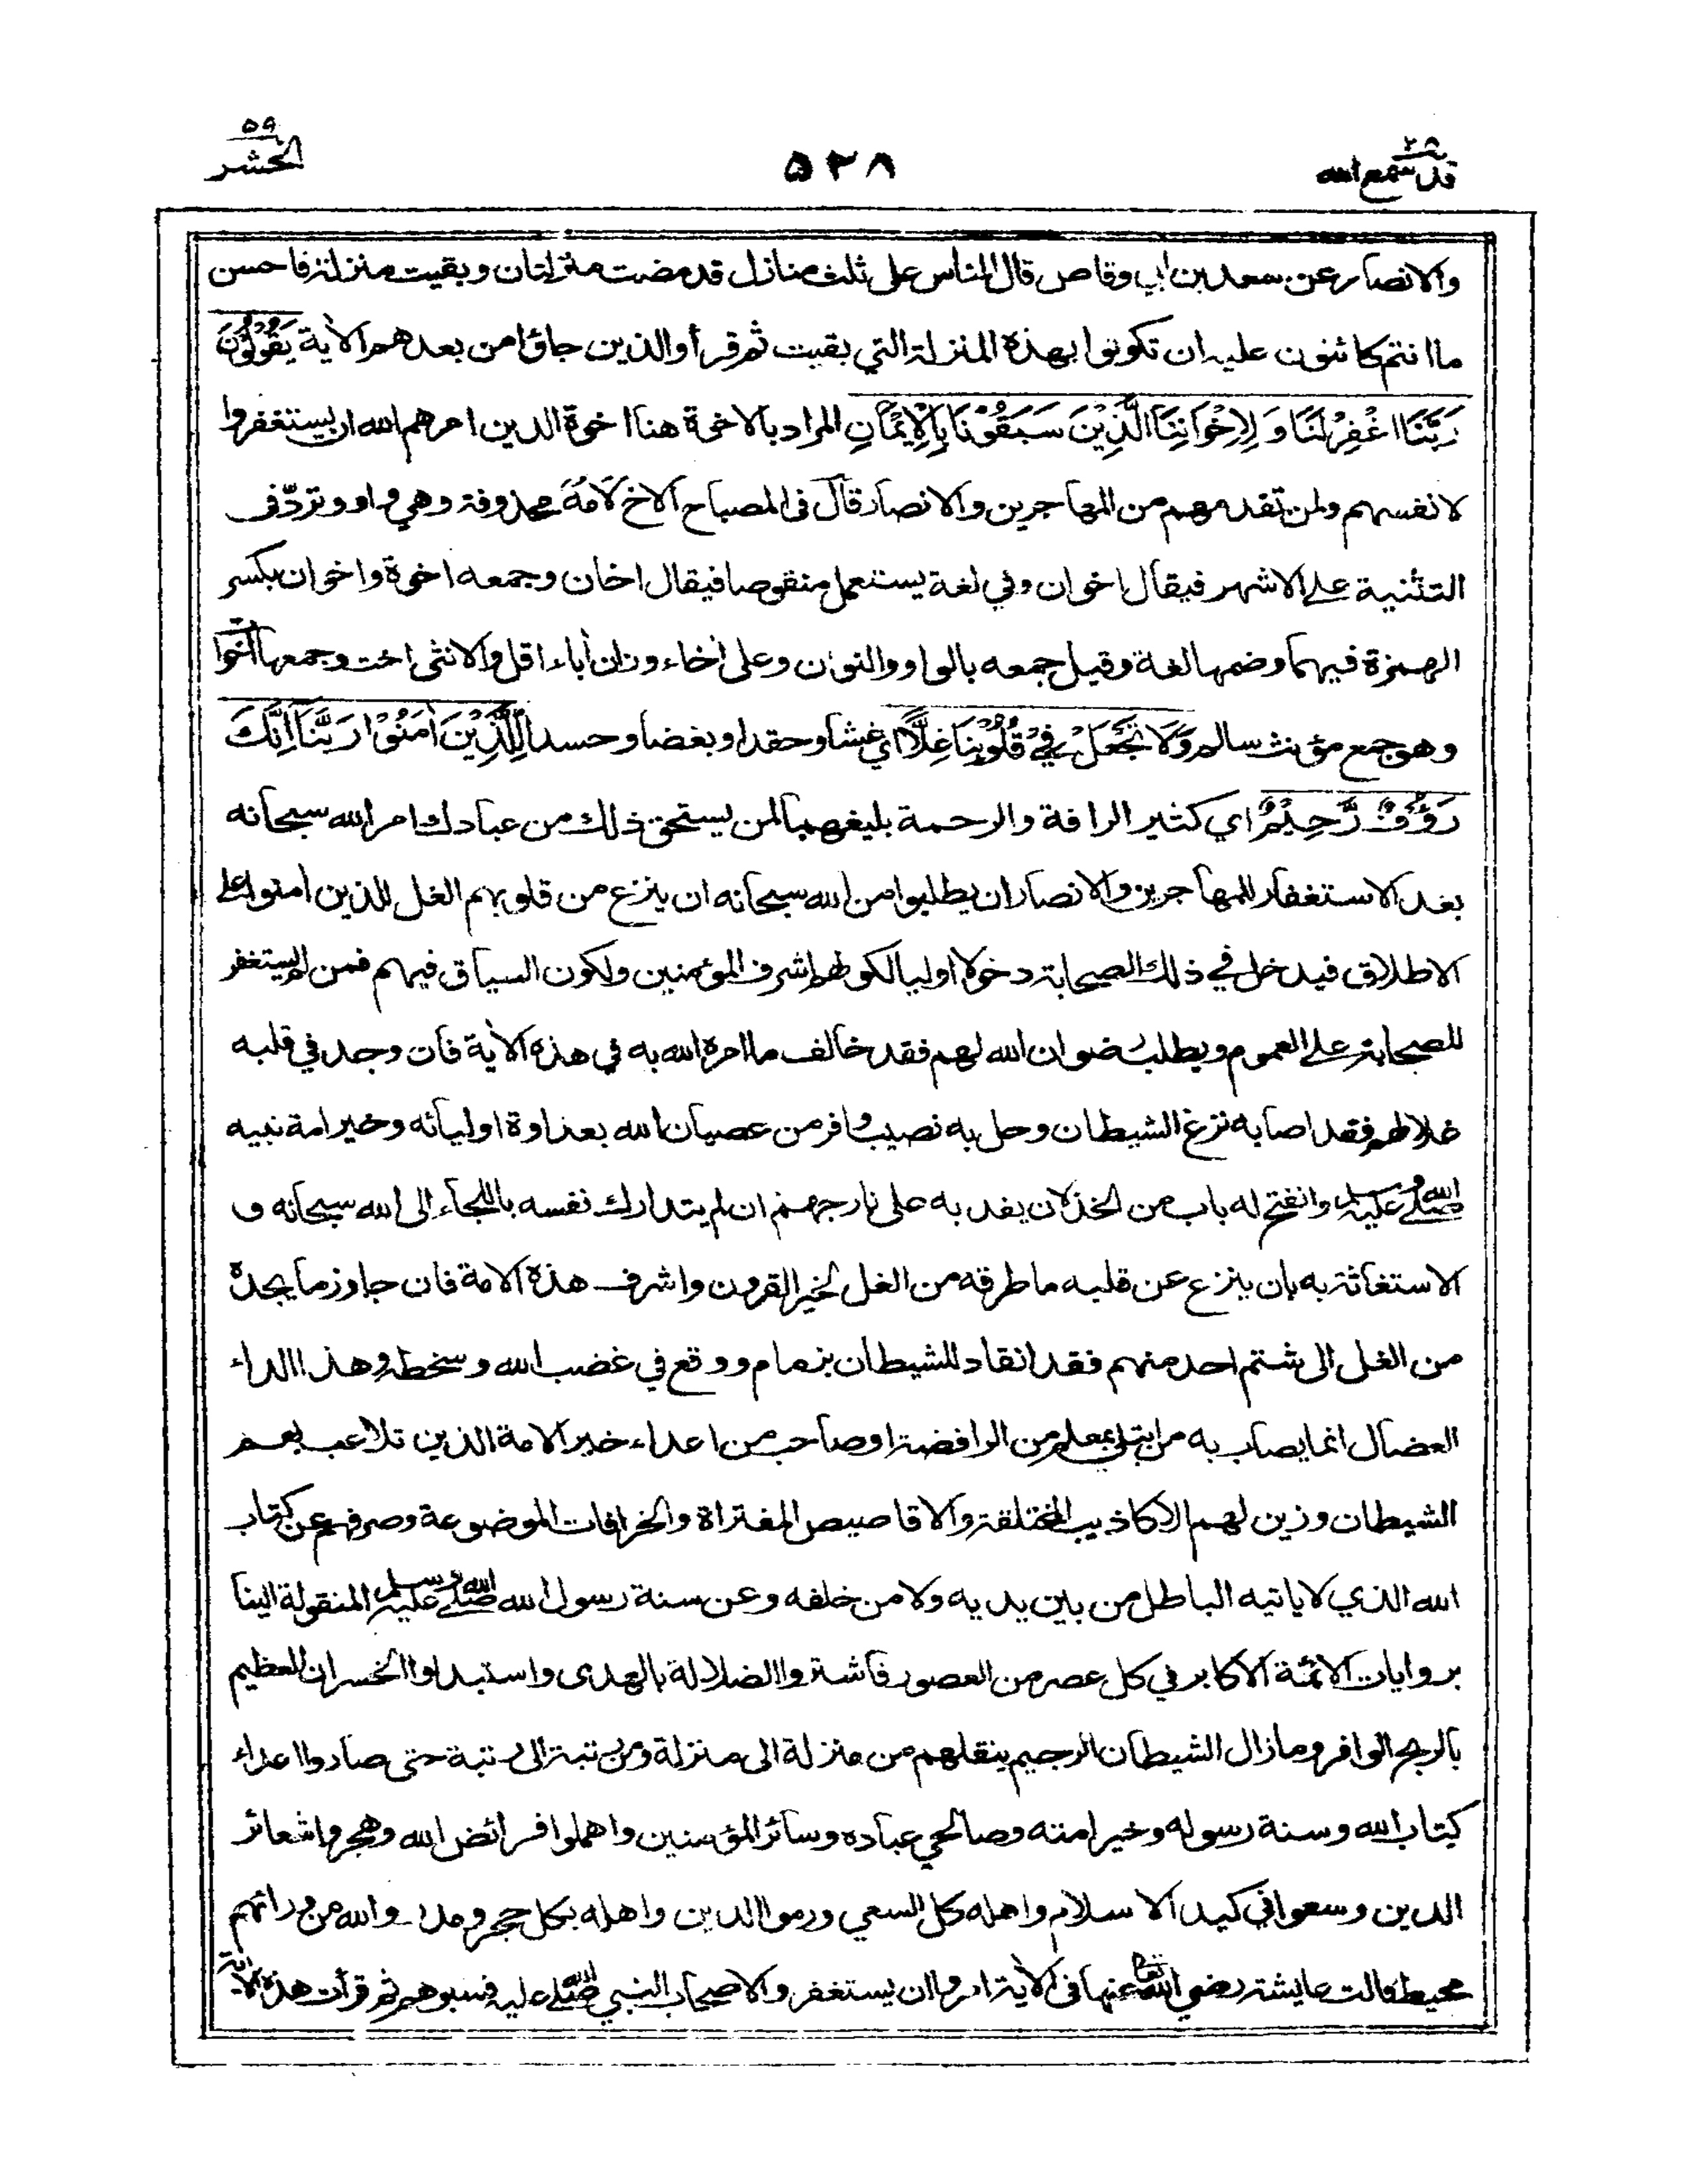 قد سمع الله ٢٨
٥٢٨
الحشر ٥٩
والانصار عن سعد بن ابي وقاص قال الناس على ثلث منازل قد مضت منزلتان وبقيت منزلة فاحسن
ما انتم كائنون عليه ان تكونوا بهذه المنزلة التي بقيت ثم قرأ والذين جاؤا من بعدهم الاٰية يَقُوْلُوْنَ
رَبَّنَا اغْفِرْ لَنَا وَ لِاِخْوَانِنَا الَّذِيْنَ سَبَقُوْنَا بِالْاِيْمَانِ المراد بالاخوة هنا اخوة الدين امرهم الله ان يستغفروا
لانفسهم ولمن تقدمهم من المهاجرين والانصار قال فى المصباح الاخ لَامُهُ محذوفة وهي واو وتردّ فى
التثنية على الاشهر فيقال اخوان وفي لغة يستعمل منقوصا فيقال اخان وجمعه اخوة واخوان بكسر
الهمزة فيهما وضمها لغة وقيل جمعه بالواو والنون وعلى اٰخاء وزان اٰباء اقل والانثى اخت وجمعها اخوات
وهو جمع مؤنث سالم وَلَا تَجْعَلْ فِيْ قُلُوْبِنَا غِلًّا اي غشا وحقدا وبغضا وحسدا لِلَّذِيْنَ اٰمَنُوْا رَبَّنَا اِنَّكَ
رَؤُفٌ رَّحِيْمٌ اي كثير الرافة والرحمة بليغهما لمن يستحق ذلك من عبادك امر الله سبحانه
بعد الاستغفار للمهاجرين والانصار ان يطلبوا من الله سبحانه ان ينزع من قلوبهم الغل للذين امنوا على
الاطلاق فيدخل في ذلك الصحابة دخولا اوليا لكونهم اشرف المؤمنين ولكون السياق فيهم فمن لم يستغفر
للصحابة على العموم ويطلب رضوان الله لهم فقد خالف ما امره الله به في هذه الاٰية فان وجد في قلبه
غلا لهم فقد اصابه نزغ الشيطان وحل به نصيب وافر من عصيان الله بعداوة اوليائه وخير امة نبيه
صلى الله عليه وسلم وانفتح له باب من الخذلان يفد به على نار جهنم ان لم يتدارك نفسه باللجاء الى الله سبحانه و
الاستغاثة به بان ينزع عن قلبه ما طرقه من الغل لخير القرون واشرف هذه الامة فان جاوز ما يجده
من الغل الى شتم احد منهم فقد انقاد للشيطان بزمام ووقع في غضب الله وسخطه وهذا الداء
العضال انما يصاب به من ابتلي بمعلم من الرافضة او صاحب من اعداء خير الامة الذين تلاعب بهم
الشيطان وزين لهم الاكاذيب المختلقة والاقاصيص المفتراة والخرافات الموضوعة وصرفهم عن كتاب
الله الذي لا ياتيه الباطل من بين يديه ولا من خلفه وعن سنة رسول الله صلى الله عليه وسلم المنقولة الينا
بروايات الائمة الاكابر في كل عصر من العصور فاشتروا الضلالة بالهدى واستبدلوا الخسران العظيم
بالربح الوافر وما زال الشيطان الرجيم ينقلهم من منزلة الى منزلة ومن رتبة الى رتبة حتى صاروا اعداء
كتاب الله وسنة رسوله وخير امته وصالحي عباده وسائر المؤمنين واهملوا فرائض الله وهجروا شعائر
الدين وسعوا في كيد الاسلام واهله كل السعي ورموا الدين واهله بكل حجر ومدر والله من ورائهم
محيط قالت عايشة رضي الله تعالى عنها فى الاٰية امروا ان يستغفروا لاصحاب النبي صلى الله عليه فسبوهم ثم قرأت هذه الاٰية